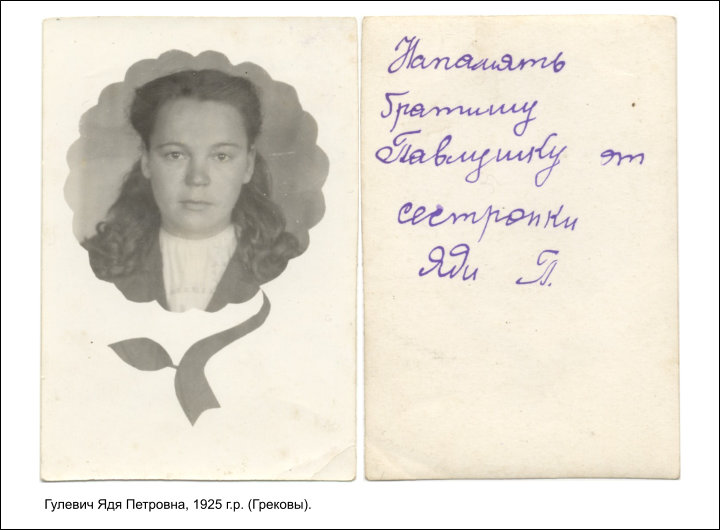 Напамять
братишу
Павлушку от
сестронки
Яди П.
Гулевич Ядя Петровна, 1925 г.р. (Грековы).